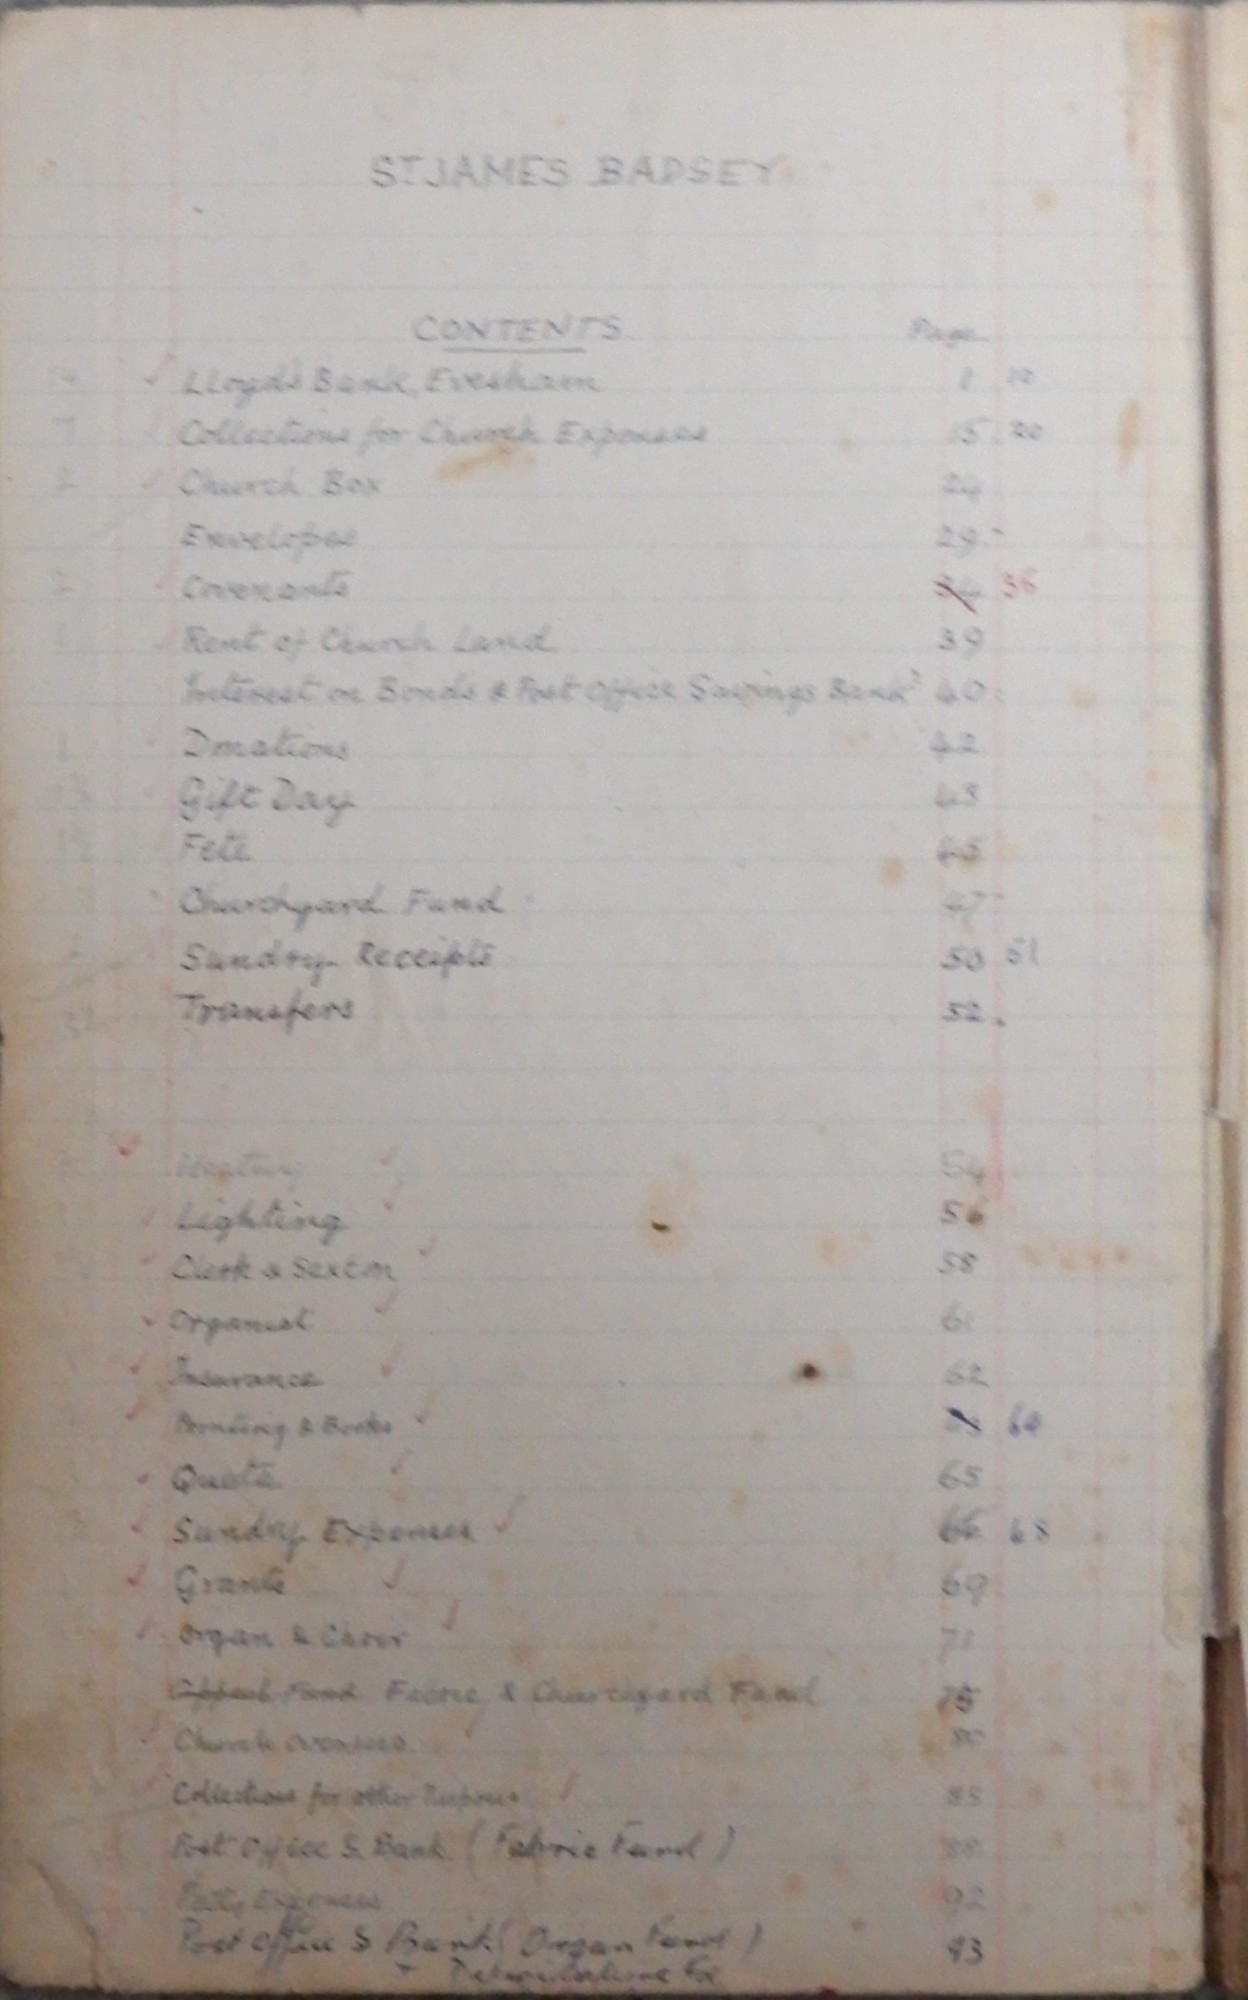 ST JAMES BADSEY
CONTENTS Page
14 Lloyds Bank, Evesham 1 10
7 Collections for Church Expenses 15 20
2 Church Box 24
Envelopes 29
2 Covenants 34 36
Rent of Church Land 39
Interest on Bonds & Post Office Savings Bank 40
1 Donations 42
Gift Day 43
Fete 45
Churchyard Fund 47
Sundry Receipts 50 51
Transfers 52
Heating 54
Lighting 56
Clerk & Sexton 58
Organist 61
Insurance 62
Printing & Books 64
Quota 65
Sundry Expenses 66 68
Grants 69
Organ & Choir 71
Appeal Fund Fabric & Churchyard Fund 75
Church 80
Collections for other Purposes 85
Post Office S. Bank (Fabric Fund) 88
Petty Expenses 92
Post Office S Bank (Organ Fund) 93